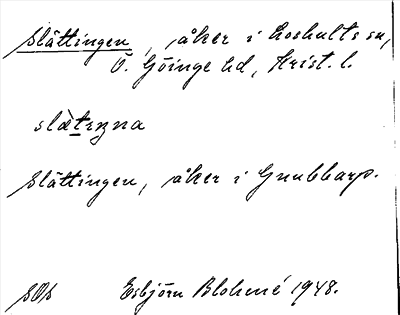 Slättingen, åker i Loshults sn,
Ö. Göinge hd, Krist. l.
Slättingen, åker i Gnubbarp.
Esbjörn Blohmé 1948.